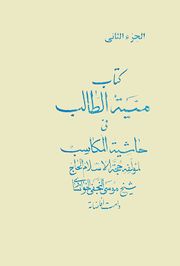 الجزء الثاني
كتاب
منية الطالب
في
حاشية المكاسب
لمؤلفه حجة الاسلام الحاج
شيخ موسى النجفي الخونساري
دامت افاضاته